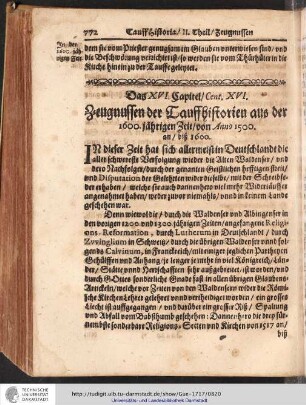 772 Tauffhistoria/ II. Theil/ Zeugnussen
In der 1600. jährigen Zeit.
dem sie vom Priester genugsam im Glauben unterwiesen sind/ und
die Beschwärung verrichtet ist/ so werden sie vom Thürhüter in die
Kirche hinein zu der Tauffe geleytet.
Das XVI. Capitel/ Cent. XVI.
Zeugnussen der Tauffhistorien aus der
1600. jährigen Zeit/ von Anno 1500.
an/ biß 1600.
IN dieser Zeit hat sich allermeist in Deutschlandt die
aller schwereste Verfolgung wieder die Alten Waldenser/ und
dero Nachfolger/ durch der genanten Geistlichen hefftigen streit/
und Disputation der Gelehrten wieder dieselb/ mit der Scheidbrie-
der erhaben/ welche sie auch
angenahmet haben/ weder zuvor niemahls/ und in keinem Lande
geschehen war.
Denn wiewol die/ durch die Waldenser und Albigenser in
den vorigen 1200 und 1300 jährigen Zeiten/ angefangene Religi-
ons-Reformation, durch Lutherum in Deutschland/ durch
Zvvinglium in Schweitz/ durch die übrigen Waldenser und fol-
gends Calvinum, in Franckreich/ mit einiger jeglichen Partheyen
Gehülffen und Anhang/ je langer je mehr in viel Königreich/ län-
der/ Städte und Herrschafften sehr außgebreitet ist worden/ und
durch Gottes sonderliche Gnade fast in allen übrigen Glaubens-
Articulen/ welche vor Zeiten von den Waldenser wider die Römi-
sche Kirchen Lehrer gelehret und vertheidiget worden/ ein grosses
Liecht ist auffgegangen/ und darüber ein grosser Riß/ Spaltung
und Abfall vom Pabsthumb geschehen: Dannenhero die drey für-
nembste sonderbare Religions-Secten und Kirchen von 1517 an/
biß
TECHNISCHE
UNIVERSITÄT
DARMSTADT
http://tudigit.ulb.tu-darmstadt.de/show/Gue-1717/0820
Universitäts- und Landesbibliothek Darmstadt